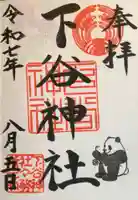 奉拝
下谷神社
令和七年
八月五日